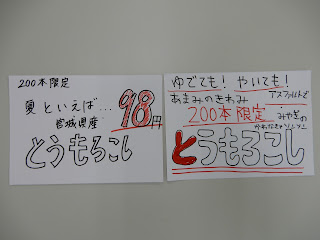 200本限定
夏といえば…
98円
宮城県産
とうもろこし
ゆでても！やいても！
あまみのきわみ
アスファルトで
200本限定
みやぎの
とうもろこし